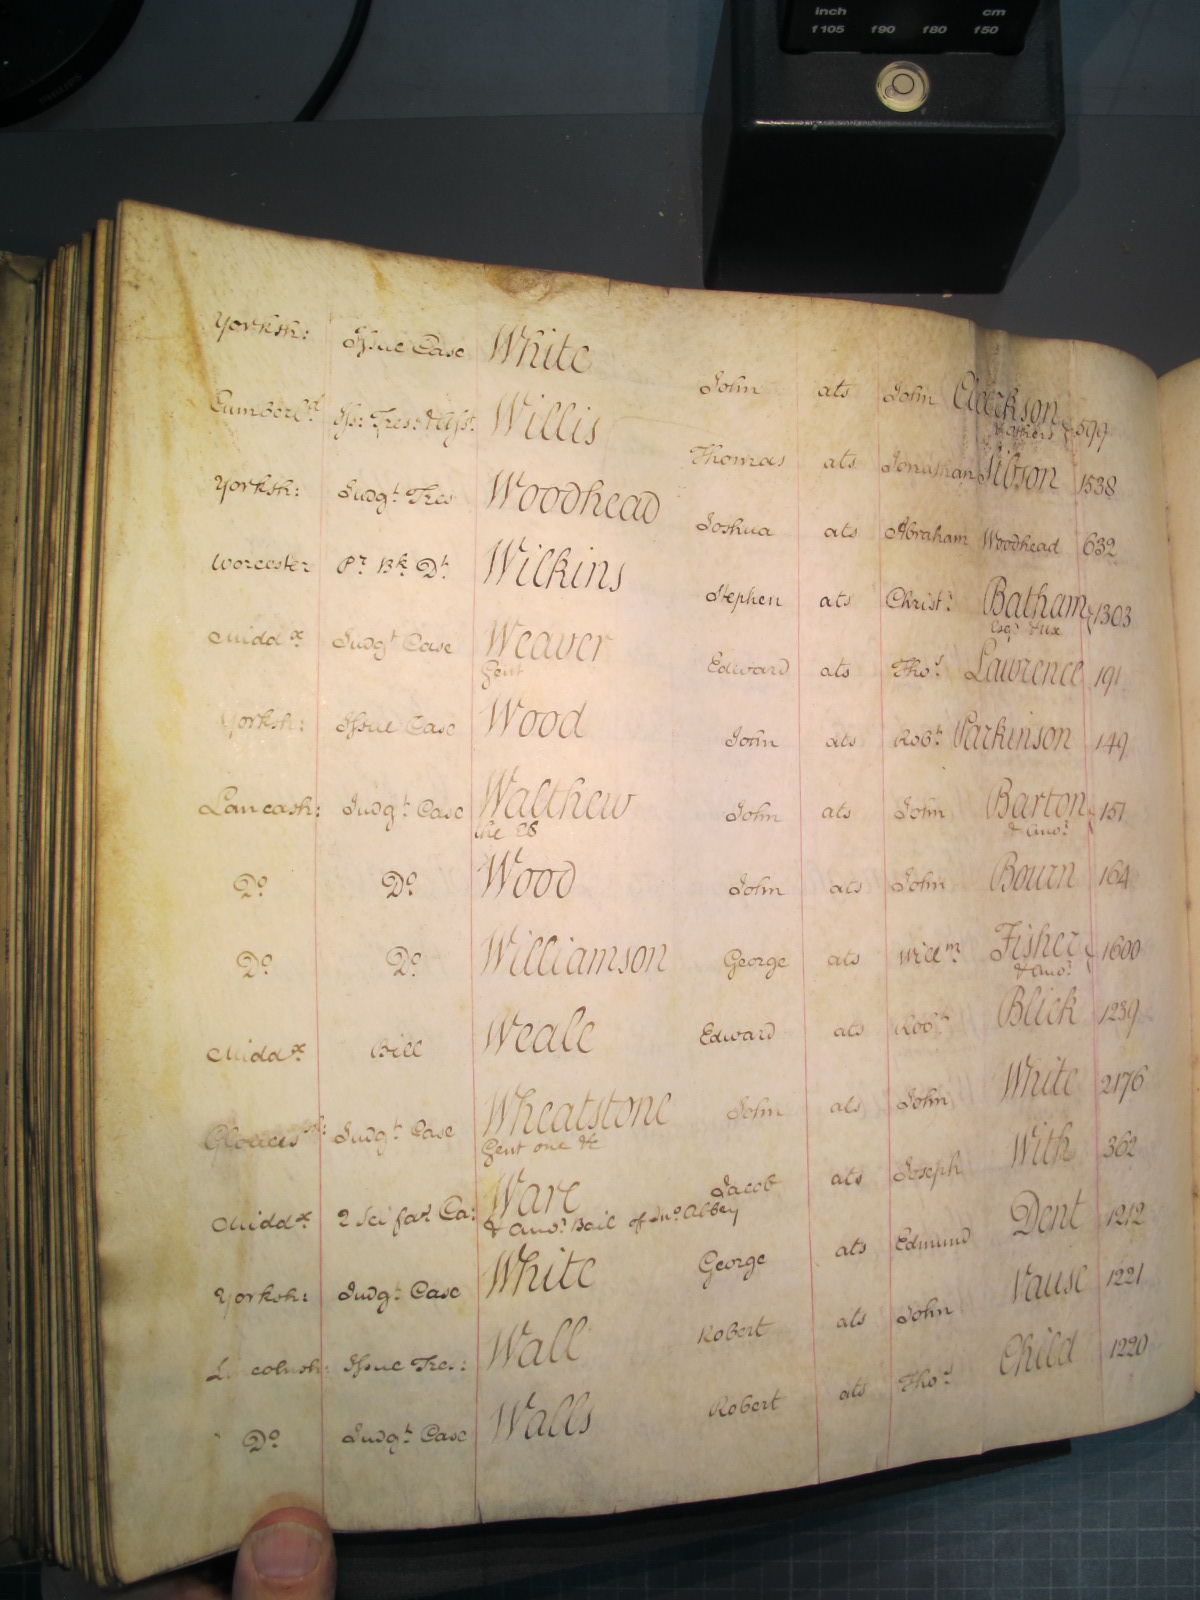 inch cm
f105 f90 f80 f50
PHILIPS
Yorksh: Issue Case White John ats John Clarkson & others 599
Cumberld Iss: Tres: & Asst. Willis Thomas ats Jonathan Sibson 1538
Yorksh: Judgt Tres Woodhead Joshua ats Abraham Woodhead 632
Worcester Pr Bk Dt Wilkins Stephen ats Christr Batham Esqr & Ux 1303
Middx Judgt Case Weaver Gent Edward ats Thos Lawrence 191
Yorksh: Issue Case Wood John ats Robt Parkinson 149
Lancash: Judgt Case Walthew the Er John ats John Barton & Anor 151
Do Do Wood John ats John Bourn 164
Do Do Williamson George ats Willm Fisher & Anor 1600
Middx Bill Weale Edward ats Robt Blick 1239
Gloucessh: Judgt Case Wheatstone Gent one &c John ats John White 2176
Middx 2 Sci fas Ca: Ware & Anor Bail of Jno Albey Jacob ats Joseph With 362
Yorksh: Judgt Case White George ats Edmund Dent 1212
Lincolnsh: Issue Tres: Wall Robert ats John Vause 1221
Do Judgt Case Walls Robert ats Thos Child 1220